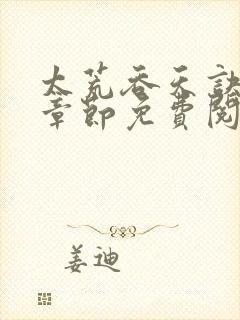 太荒吞天诀
章節免費閱
姜迪